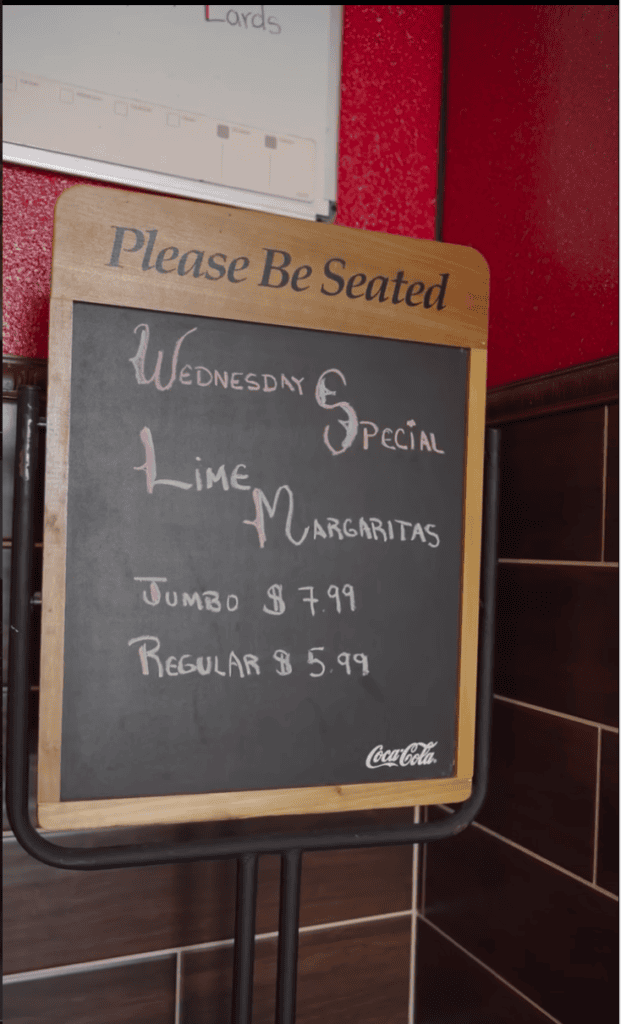 Cards
Please Be Seated
WEDNESDAY SPECIAL
LiME
MARGARITAS
JUMBO $ 7.99
REGULAR $ 5.99
Coca-Cola